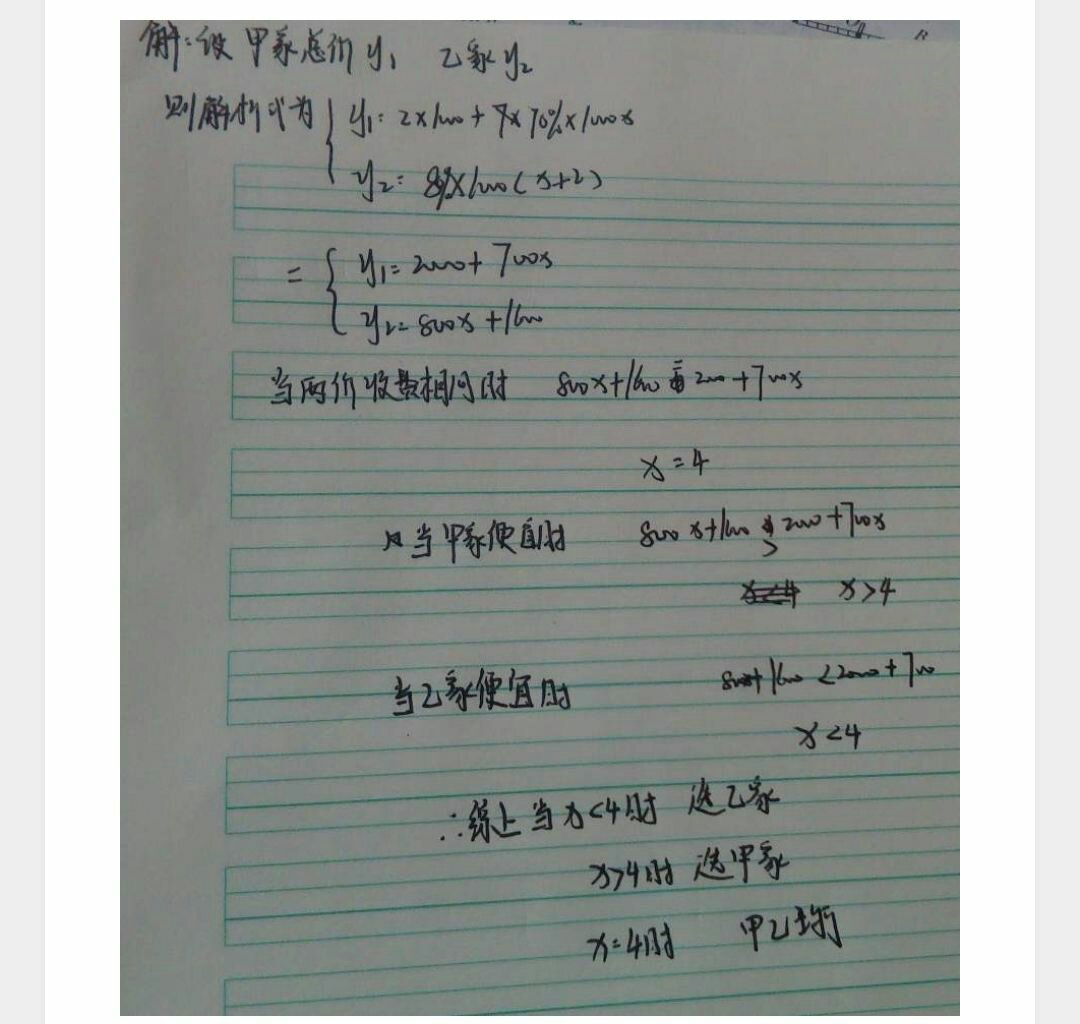 解:设 甲家总价y₁ 乙家y₂
则解析式为 { y₁= 2×1000 + 7×70%×1000x
y₂= 8%×1000(x+2)
= { y₁= 2000+ 700x
y₂= 800x +1600
当两价收费相同时 800x+1600 = 2000 +700x
x = 4
当甲家便宜时 800x+1600 > 2000 +700x
x<4 x>4
当乙家便宜时 800x+1600 <2000 + 700
x <4
∴综上 当x<4时 选乙家
x>4时 选甲家
x=4时 甲乙均行